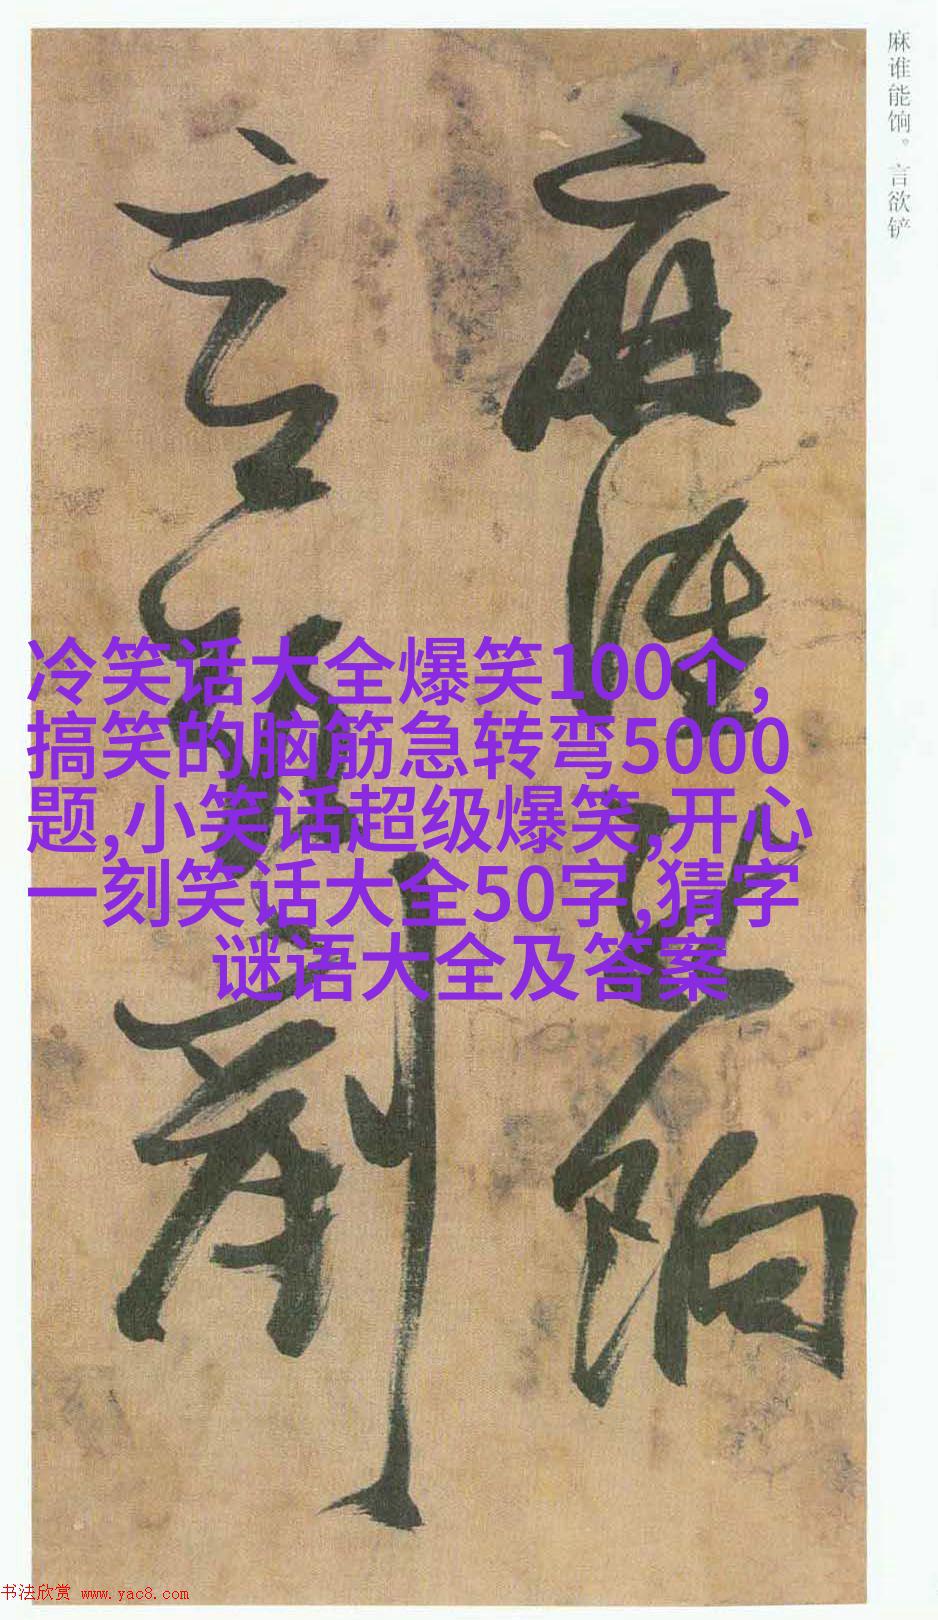 麻谁能饷。言欲铲
麻誰能餉
言欲剷
冷笑话大全爆笑100个,
搞笑的脑筋急转弯5000
题,小笑话超级爆笑,开心
一刻笑话大全50字,猜字
谜语大全及答案
书法欣赏 www.yac8.com